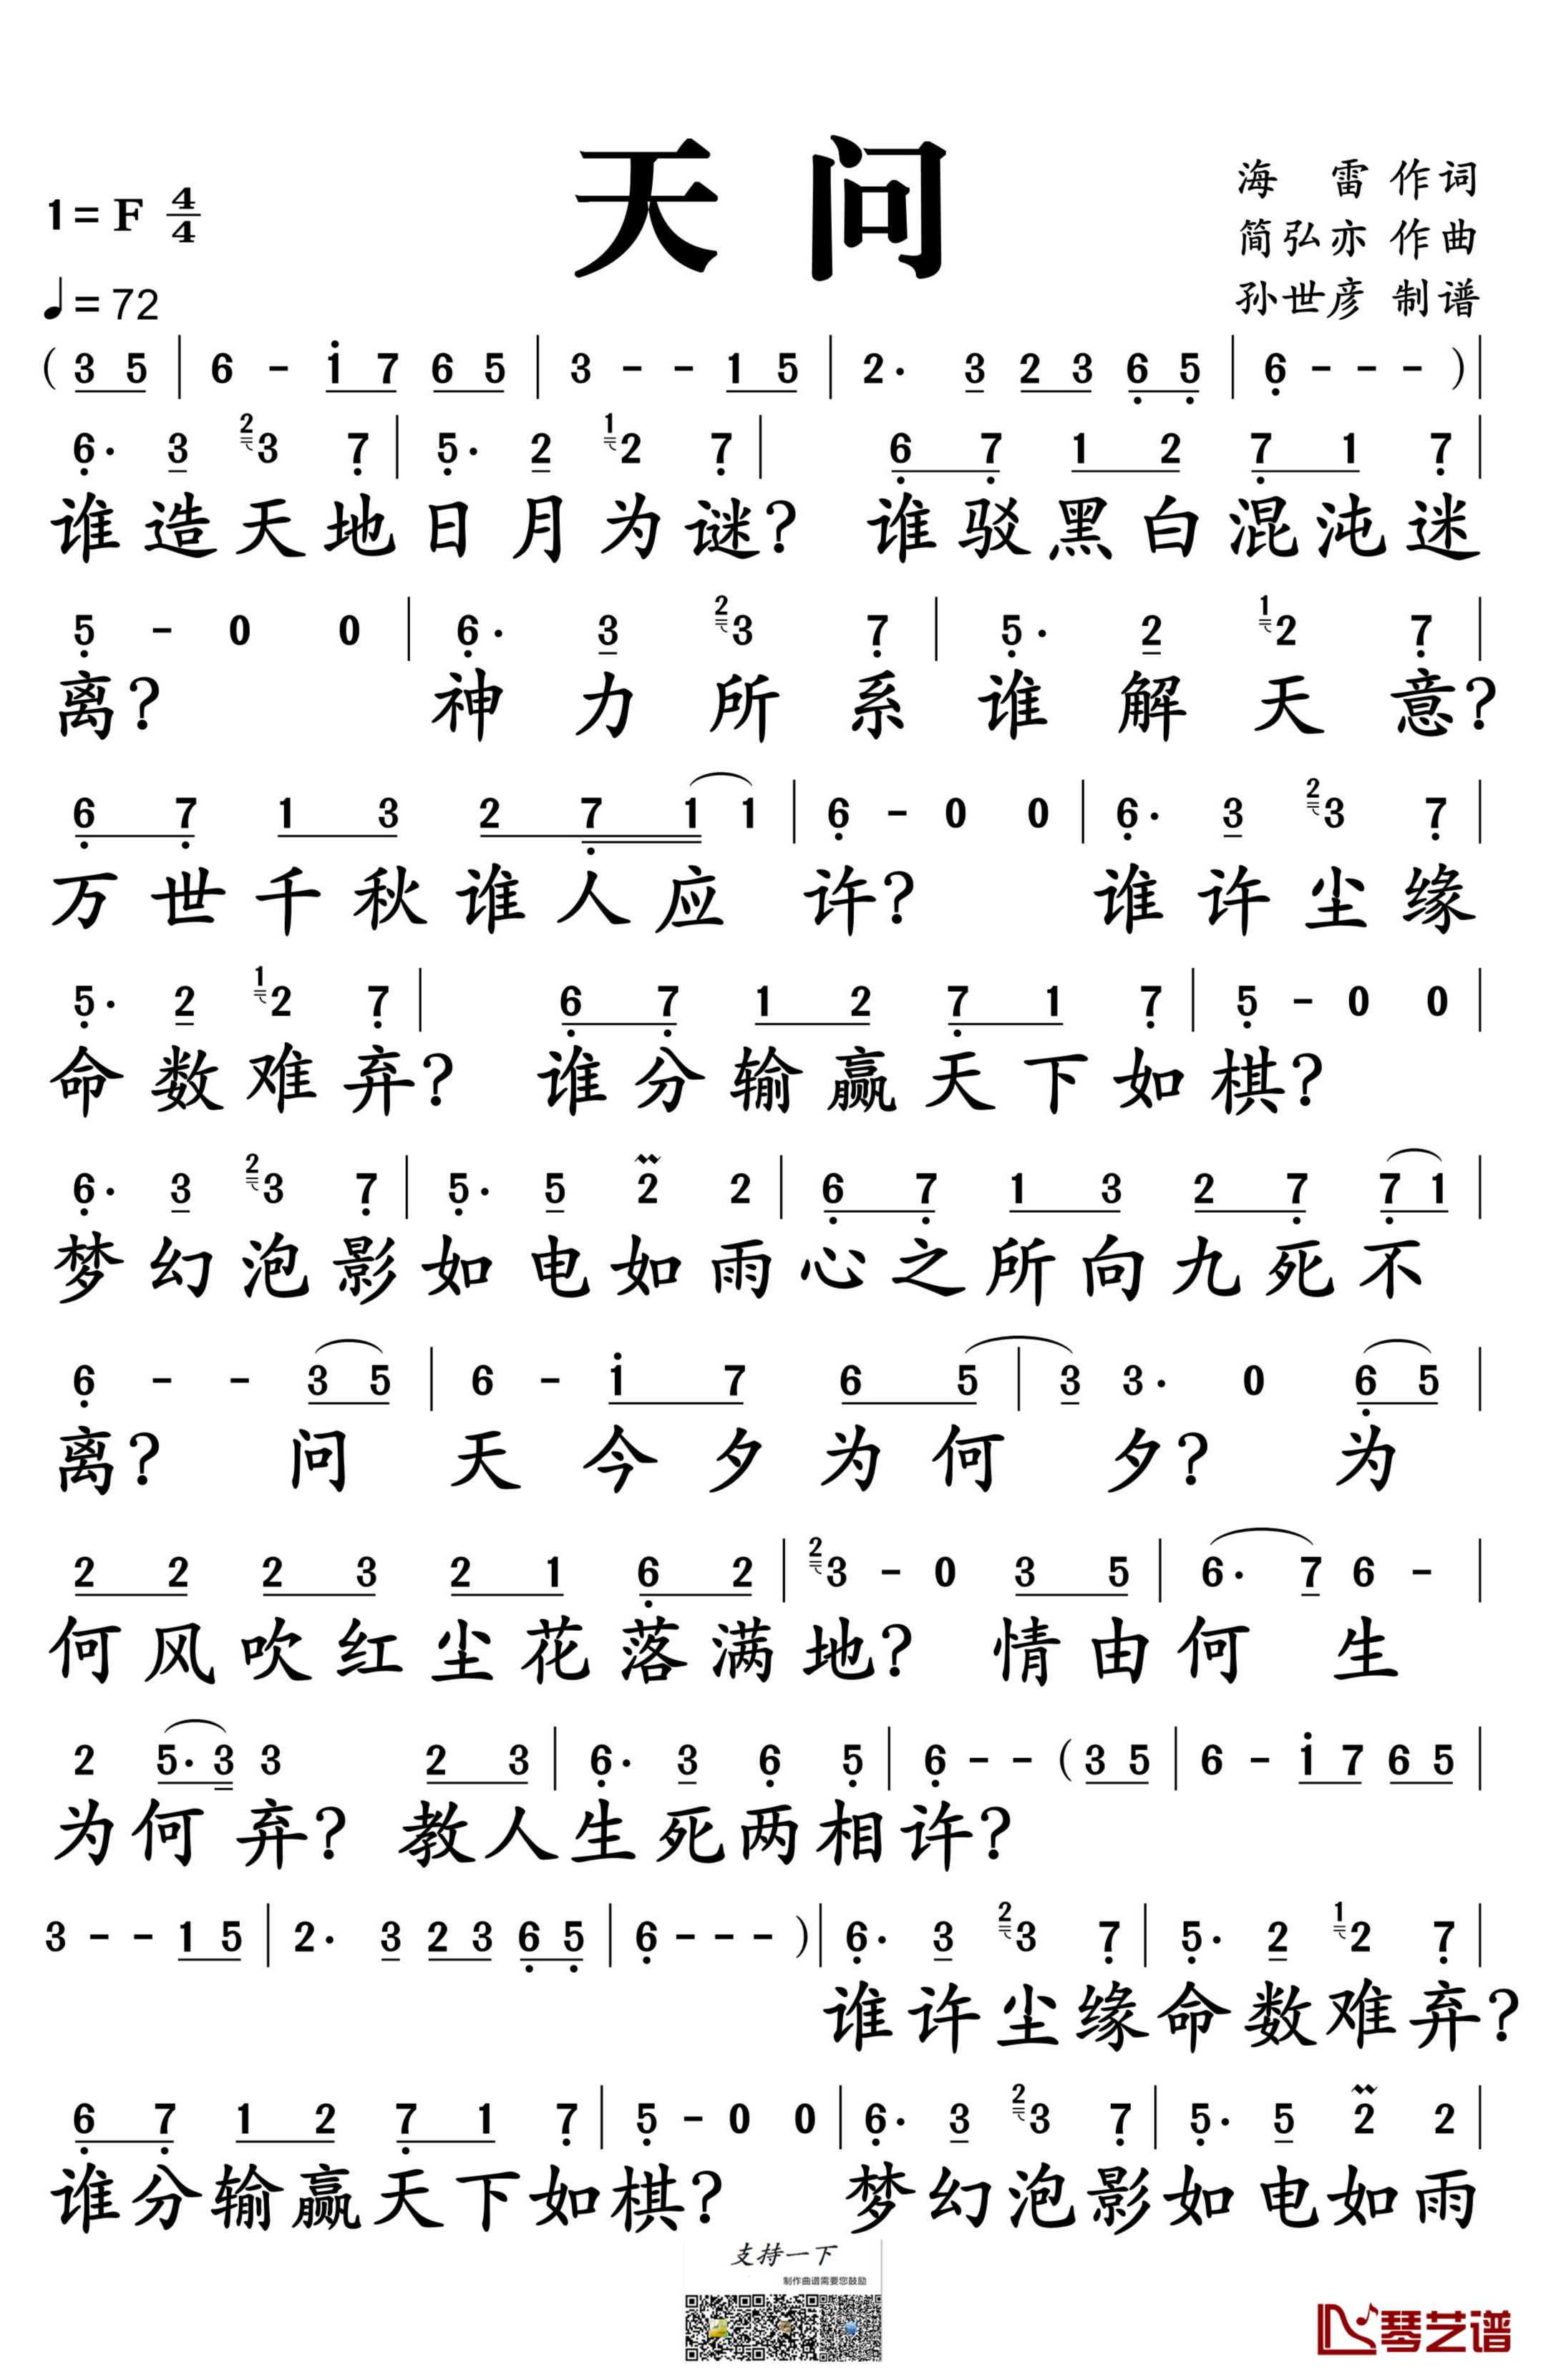 天 问
1=F 4/4
♩=72
海 雷 作词
简弘亦 作曲
孙世彦 制谱
( 3 5 | 6 - i 7 6 5 | 3 - - 1 5 | 2· 3 2 3 6 5 | 6 - - - ) |
6· 3 2 3 7 | 5· 2 1 2 7 | 6 7 1 2 7 1 7 |
谁造天地日月为谜? 谁驳黑白混沌迷
5 - 0 0 | 6· 3 2 3 7 | 5· 2 1 2 7 |
离? 神力所系谁解天意?
6 7 1 3 2 7 1 1 | 6 - 0 0 | 6· 3 2 3 7 |
万世千秋谁人应许? 谁许尘缘
5· 2 1 2 7 | 6 7 1 2 7 1 7 | 5 - 0 0 |
命数难弃? 谁分输赢天下如棋?
6· 3 2 3 7 | 5· 5 2 2 | 6 7 1 3 2 7 7 1 |
梦幻泡影如电如雨心之所向九死不
6 - - 3 5 | 6 - i 7 6 5 | 3 3· 0 6 5 |
离? 问天今夕为何夕? 为
2 2 2 3 2 1 6 2 | 2 3 - 0 3 5 | 6· 7 6 - |
何风吹红尘花落满地? 情由何生
2 5· 3 3 2 3 | 6· 3 6 5 | 6 - - ( 3 5 | 6 - i 7 6 5 |
为何弃? 教人生死两相许?
3 - - 1 5 | 2· 3 2 3 6 5 | 6 - - - ) | 6· 3 2 3 7 | 5· 2 1 2 7 |
谁许尘缘命数难弃?
6 7 1 2 7 1 7 | 5 - 0 0 | 6· 3 2 3 7 | 5· 5 2 2 |
谁分输赢天下如棋? 梦幻泡影如电如雨
支持一下
制作曲谱需要您鼓励
琴艺谱